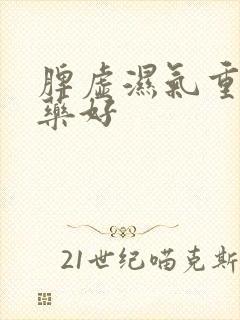 脾虚濕氣重
藥好
21世纪喵克斯